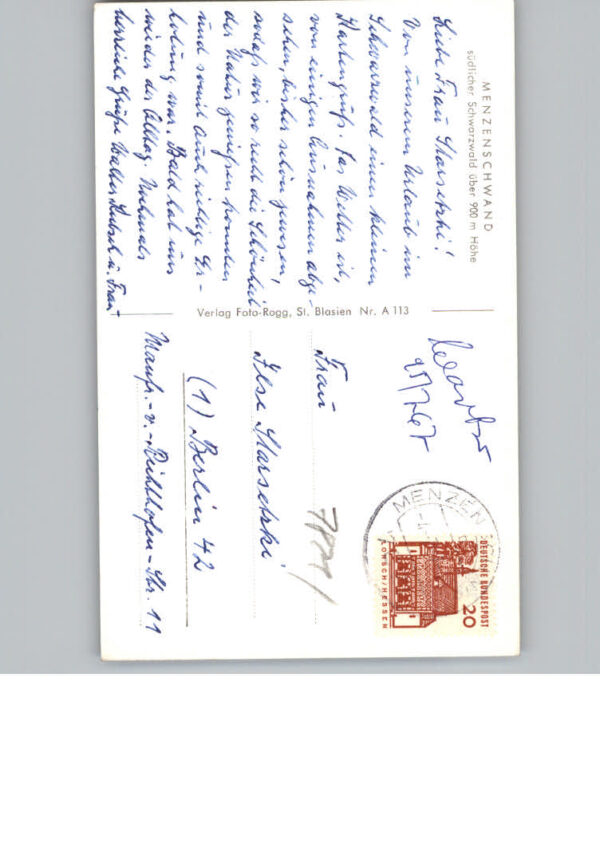 MENZENSCHWAND
südlicher Schwarzwald über 900 m Höhe
Liebe Frau Starsetzki!
Von unserem Urlaub im
Schwarzwald einen kleinen
Kartengruß. Das Wetter ist,
von einigen Ausnahmen abge-
sehen, bisher schön gewesen,
sodaß wir so recht die Schönheit
der Natur genießen konnten
und somit auch richtige Er-
holung war. Bald hat uns
wieder der Alltag. Nochmals
herzliche Grüße Walter u. Frau
Verlag Foto-Rogg, St. Blasien Nr. A 113
MENZEN
DEUTSCHE BUNDESPOST
20
LORSCH/HESSEN
Frau
Ilse Starsetzki
(1) Berlin 42
Manfr.-v.-Richthofen-Str. 11